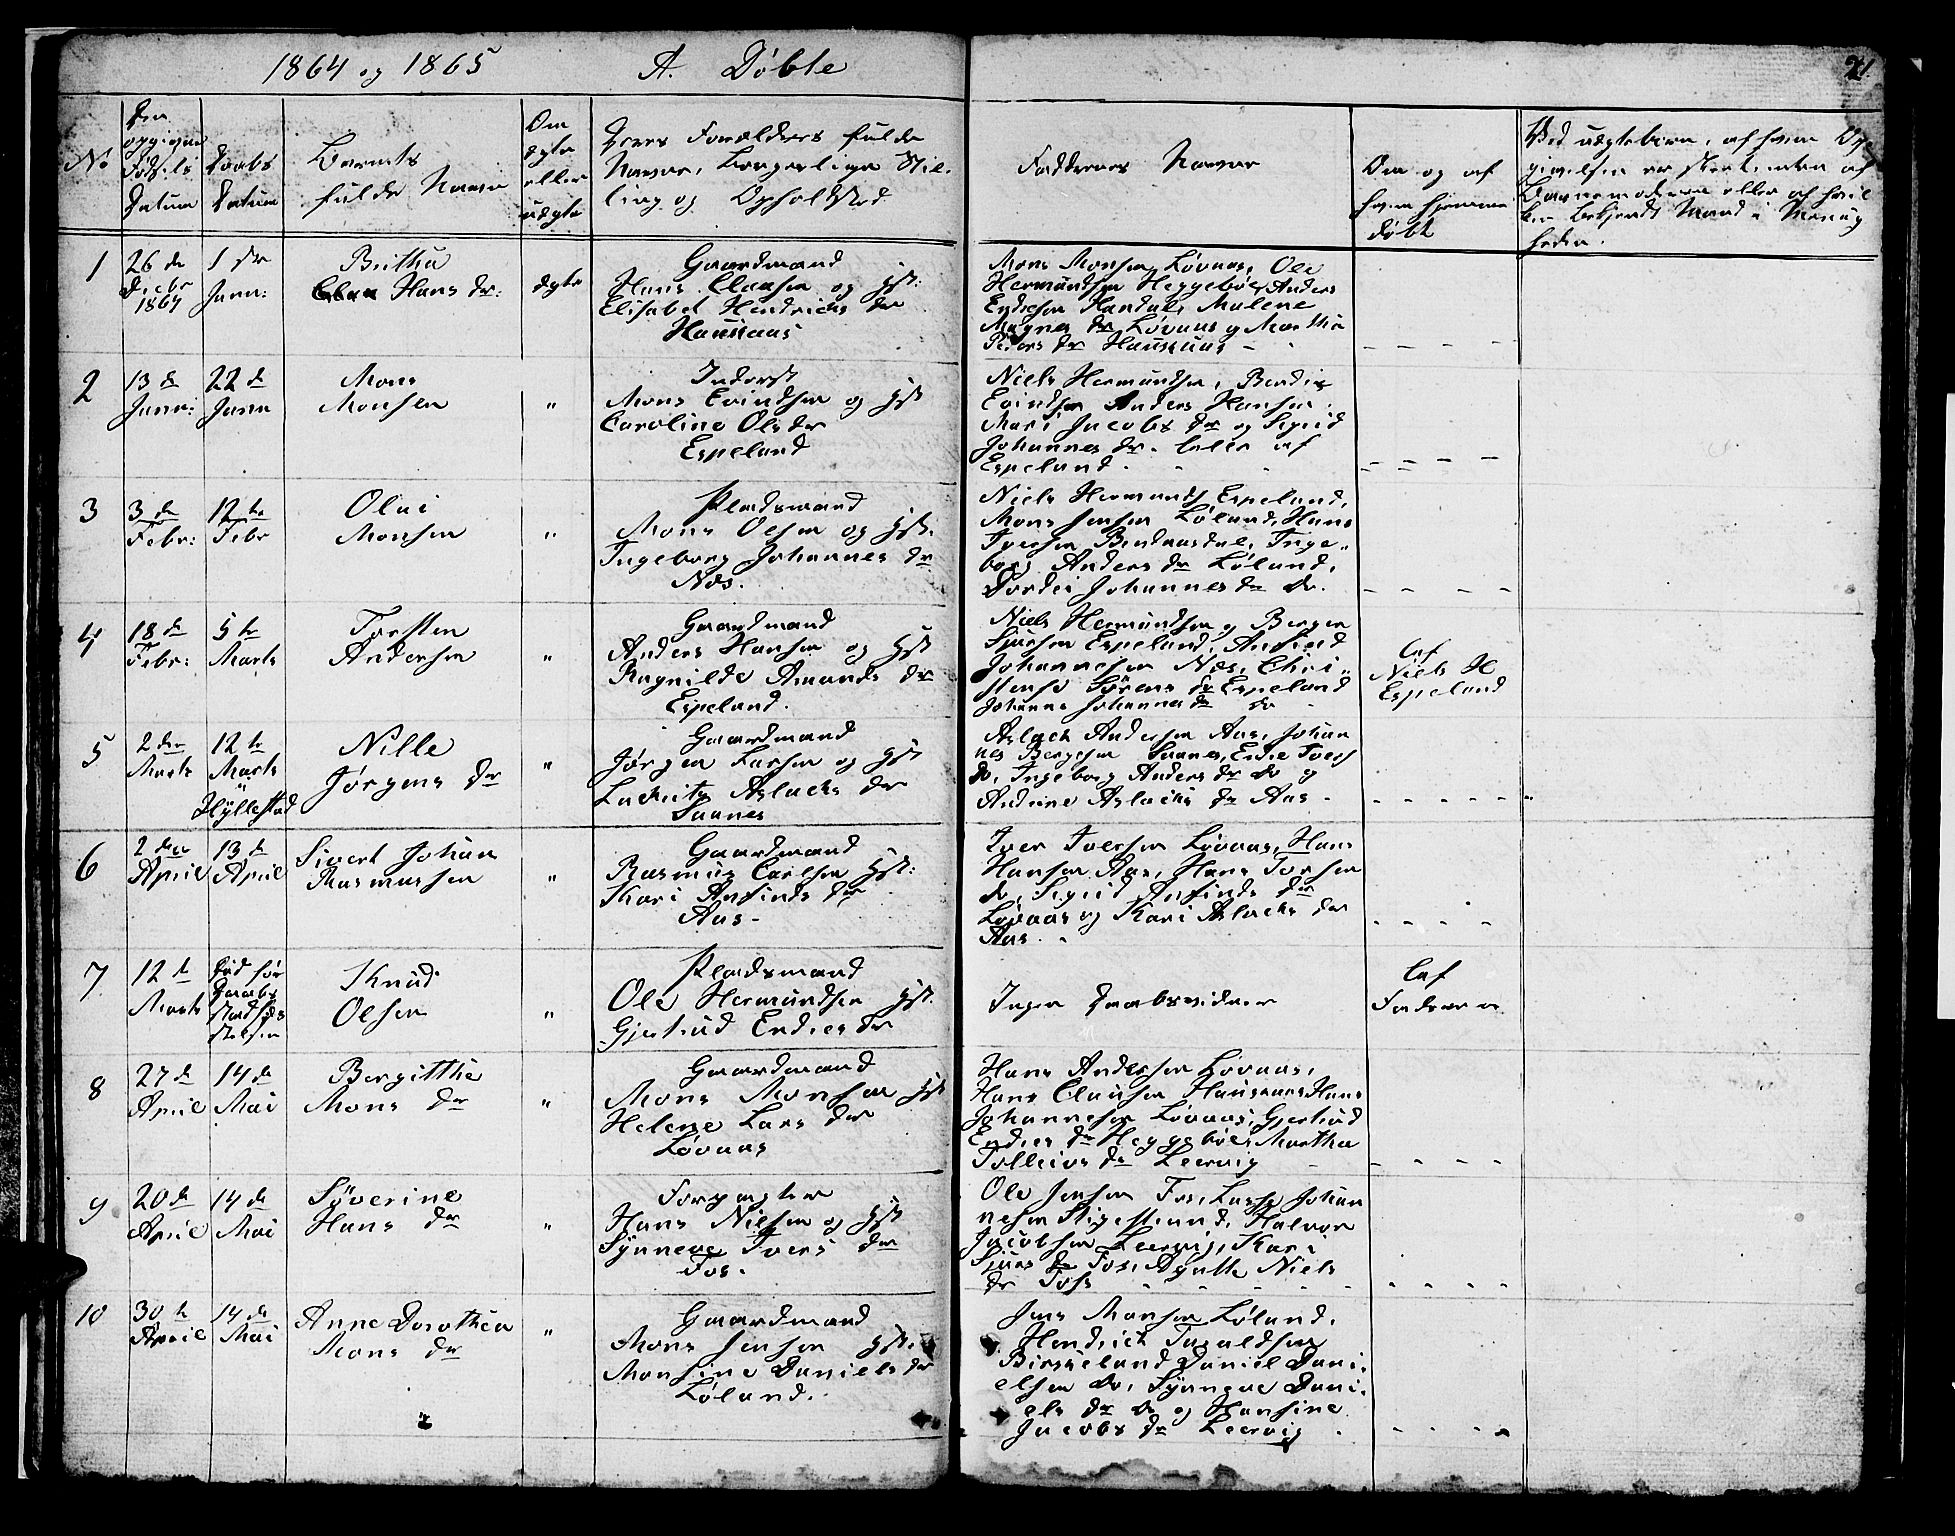 1864 og 1865 A. Döbte
21.
No
Den opgivne Födsels Datum
Daabs Datum
Barnets fulde Navn
Om ægte eller uægte
Deres Forældres fulde Navne, Borgerlige Stilling og Opholdsted
Faddernes Navne
Om og af hvem hjemmedöbt
Ved uægtebörn, af hvem Opgivelsen er skeet, enten af Barnemoderen eller af hvilken bekjendt Mand i Menigheden.
1
26 de Decbr 1864
1 ste Janr:
Brithe
Hans Dr:
ægte
Gaardmand
Hans Clausen og Hst:
Elisabet Hendriks Dr
Haussaas
Mons Monsen Lövaas, Ole
Hermundsen Heggeböe, Anders
Endresen Handal, Malene
Magnes Dr Lövaas og Martha
Peders Dr Haussaas
2
13 de Janr:
22 de Janr
Mons
Monsen
"
Inderst
Mons Evindsen og Hst
Caroline Ols Dr
Espeland
Niels Hermundsen, Bendix
Evindsen Anders Hansen
Mari Jacobs Dr og Sigrid
Johannes Dr. alle af
Espeland.
3
3 de Febr:
12 te Febr
Olai
Monsen
"
Pladsmand
Mons Olsen og Hst.
Ingeborg Johannes Dr
Næs.
Niels Hermunds Espeland,
Mons Jensen Löland, Hans
Iversen Birknæsdal, Inge-
borg Anders Dr Löland,
Dordei Johannes Dr Do.
4
18 de Febr:
5 te Marts
Torsten
Andersen
"
Gaardmand
Anders Hansen og Hst
Ragnilde Amunds Dr
Espeland.
Niels Hermundsen og Berger
Sjursen Espeland, Anfind
Johannesen Næs, Chri-
stense Sörens Dr Espeland
Johanna Johannes Dr Do
af
Niels H
Espeland
5
2 den Marts
12 te Marts
i
Hyllestad
Nille
Jörgens Dr
"
Gaardmand
Jörgen Larsen og Hst
Lachrits Aslacks Dr
Sannes
Aslack Andersen Aas, Johan
nes Bergesen Sannes, Endre Ivers
do, Ingeborg Anders Dr Do og
Andrine Aslacks Dr Aas
6
2 den April
13 de April
Sivert Johan
Rasmussen
"
Gaardmand
Rasmus Carlsen Hst:
Kari Anfinds Dr
Aas
Iver Iversen Lövaas, Hans
Hansen Aas, Hans Torsen
do, Sigrid Anfinds Dr
Lövaas og Kari Aslacks Dr
Aas
7
12 te Marts
Död för
Daabs
stadfæs
telsen
Knud
Olsen
"
Pladsmand
Ole Hermundsen Hst.
Gjertrud Endres Dr
Ingen Daabsvidner
af
Faderen
8
27 de April
14 de Mai
Bergitthe
Mons Dr
"
Gaardmand
Mons Monsen Hst
Helene Lars Dr
Lövaas
Hans Andersen Lövaas,
Hans Clausen Haussaas Hans
Johannesen Lövaas, Gjertrud
Endres Dr Heggeböe, Martha
Tolleivs Dr Leervig
9
20 de April
14 de Mai
Syverine
Hans Dr
"
Forpagter
Hans Nilsen og Hst
Synneve Ivers Dr
Fos.
Ole Jensen Fos, Lasse Johan
nesen Stigestrand, Halvor
Jacobsen Leervig, Kari
Sjurs Dr Fos, Agnitte Niels
Dr Foss
10
30 te April
14 de Mai
Anne Dorothea
Mons Dr
"
Gaardmand
Mons Jensen Hst.
Monsine Daniels Dr
Löland.
Jens Monsen Löland,
Hendrick Taraldsen
Birkeland Daniel Dani-
elsen Do, Synneve Dani-
els Dr Do og Hansine
Jacobs Dr Leervig